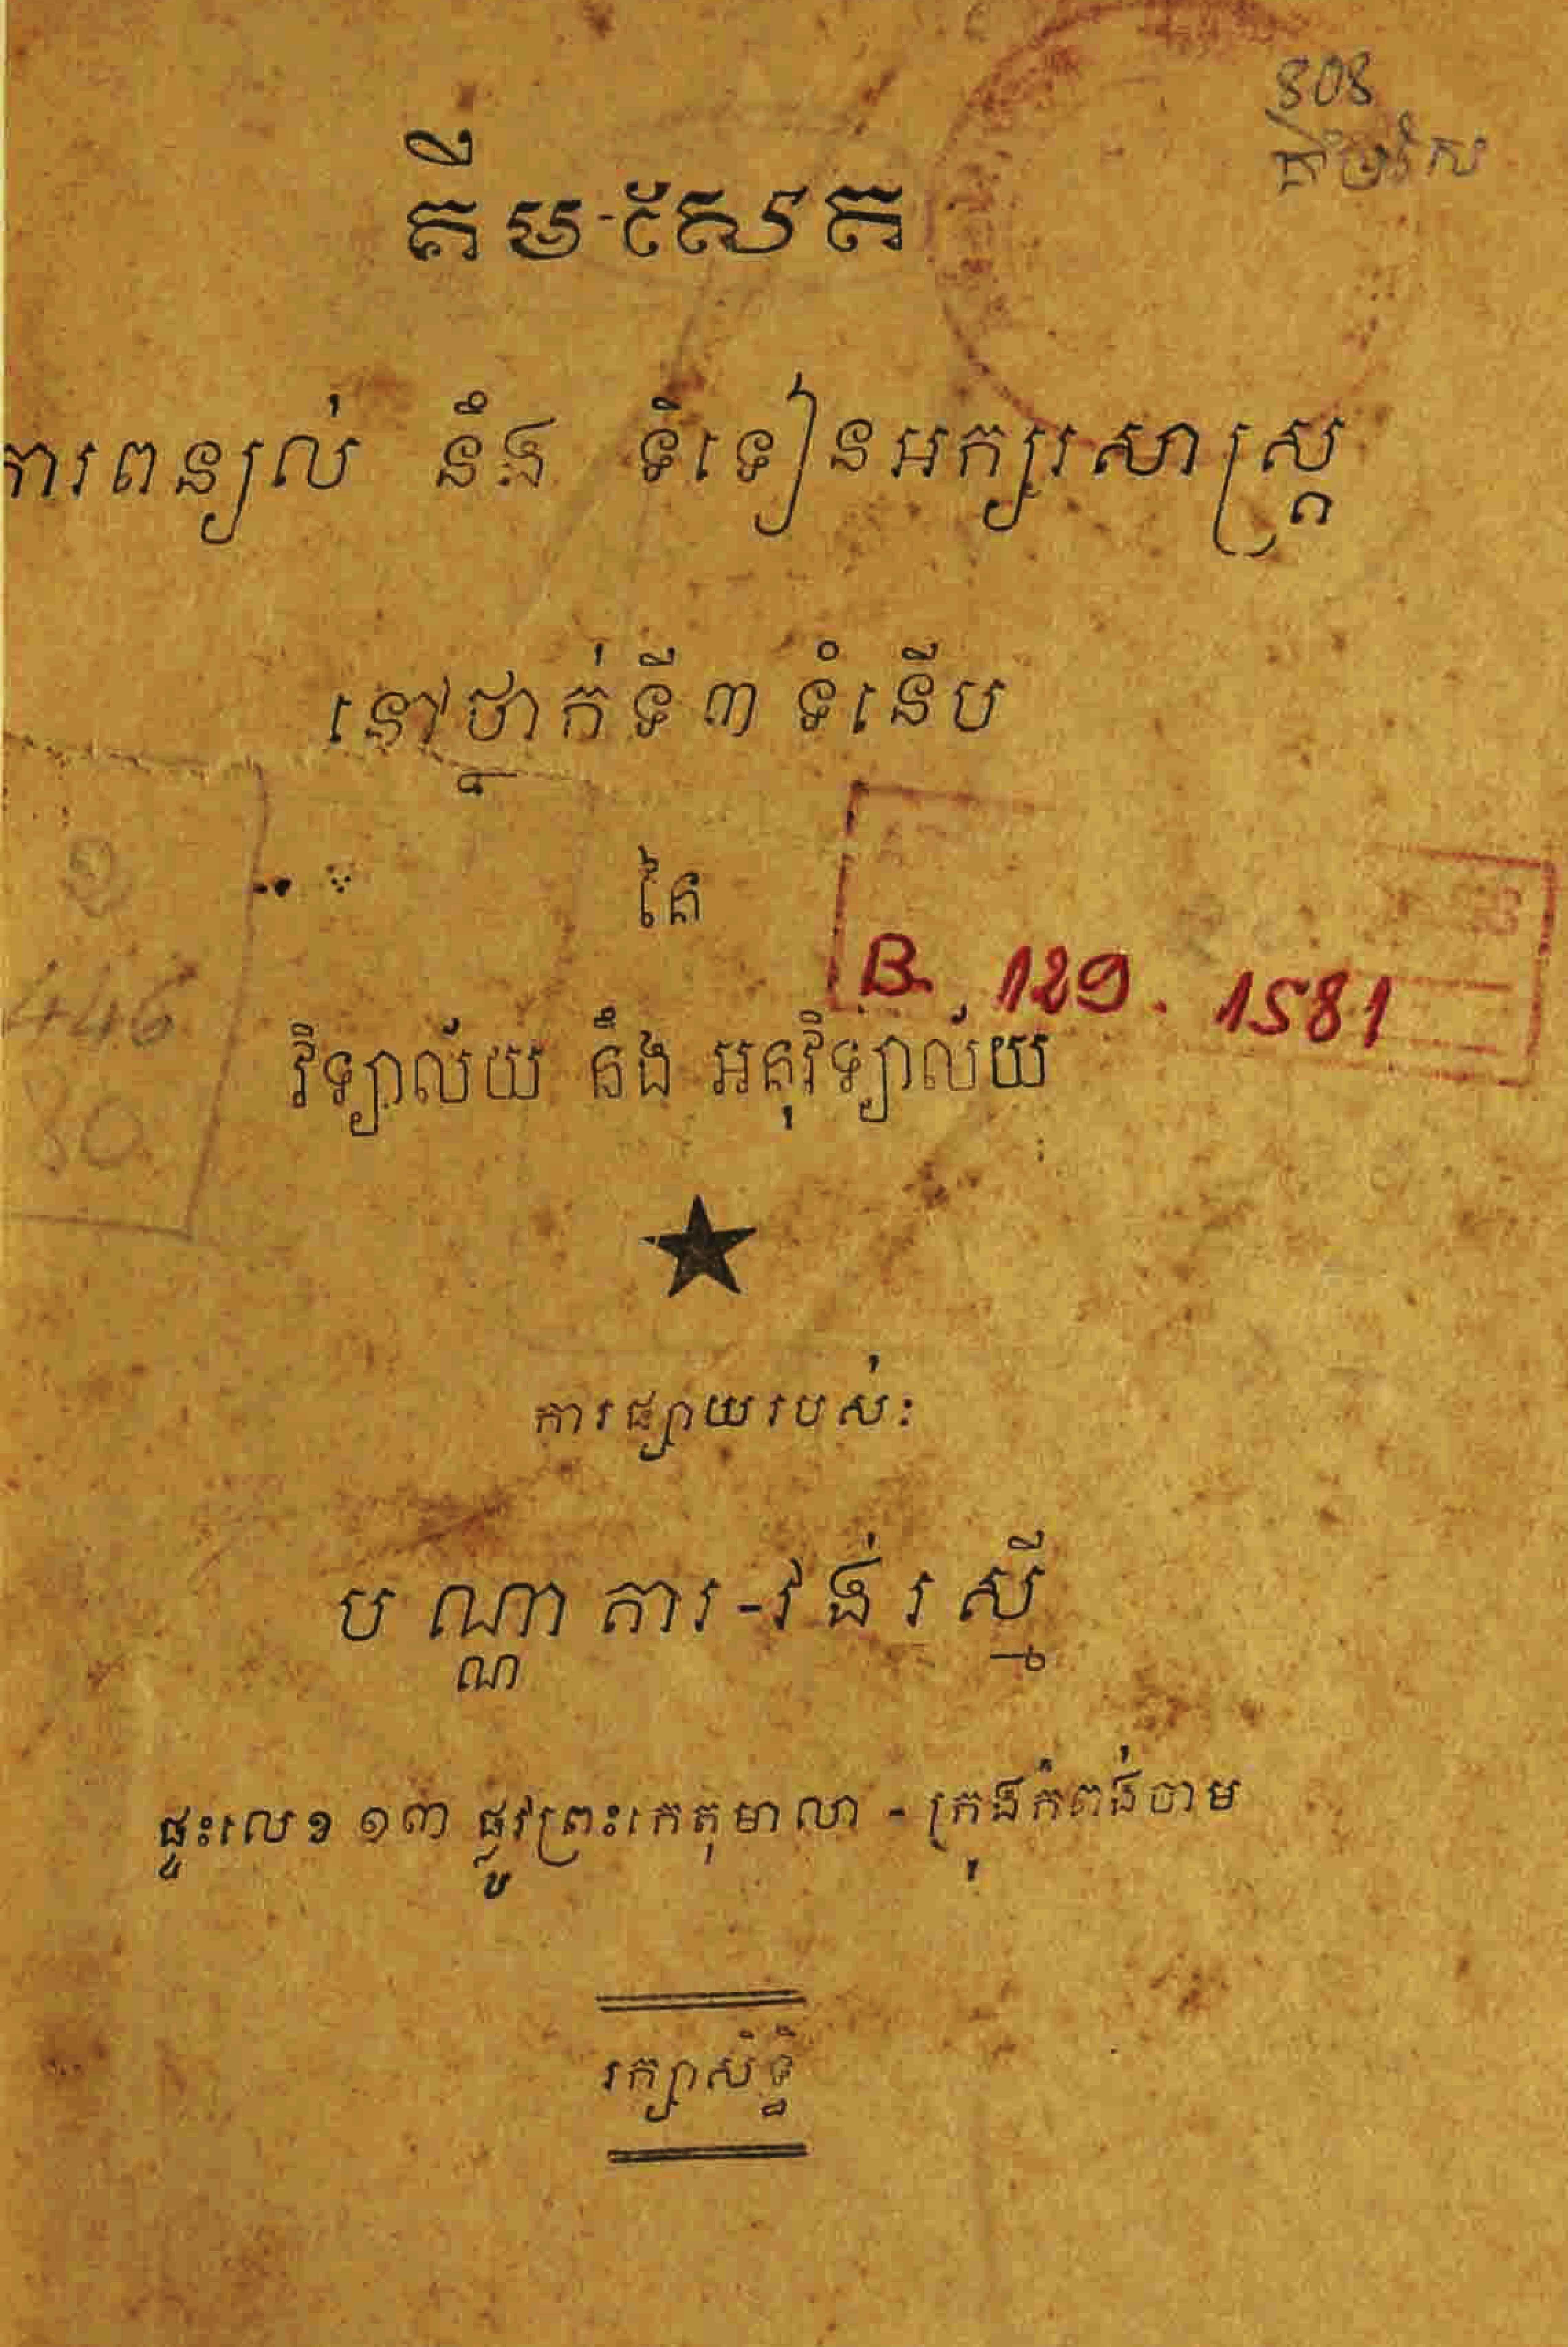 808
គឹម-សែត
ការពន្យល់ នឹង ទិទៀនអក្សរសាស្ត្រ
នៅថ្នាក់ទី៣ ទំនើប
នៃ
B. 129. 1581
446
80
វិទ្យាល័យ នឹង អនុវិទ្យាល័យ
ការផ្សាយរបស់:
បណ្ណាគារ-វង់រស្មី
ផ្ទះលេខ ១៣ ផ្លូវព្រះកេតុមាលា - ក្រុងកំពង់ចាម
រក្សាសិទ្ធិ